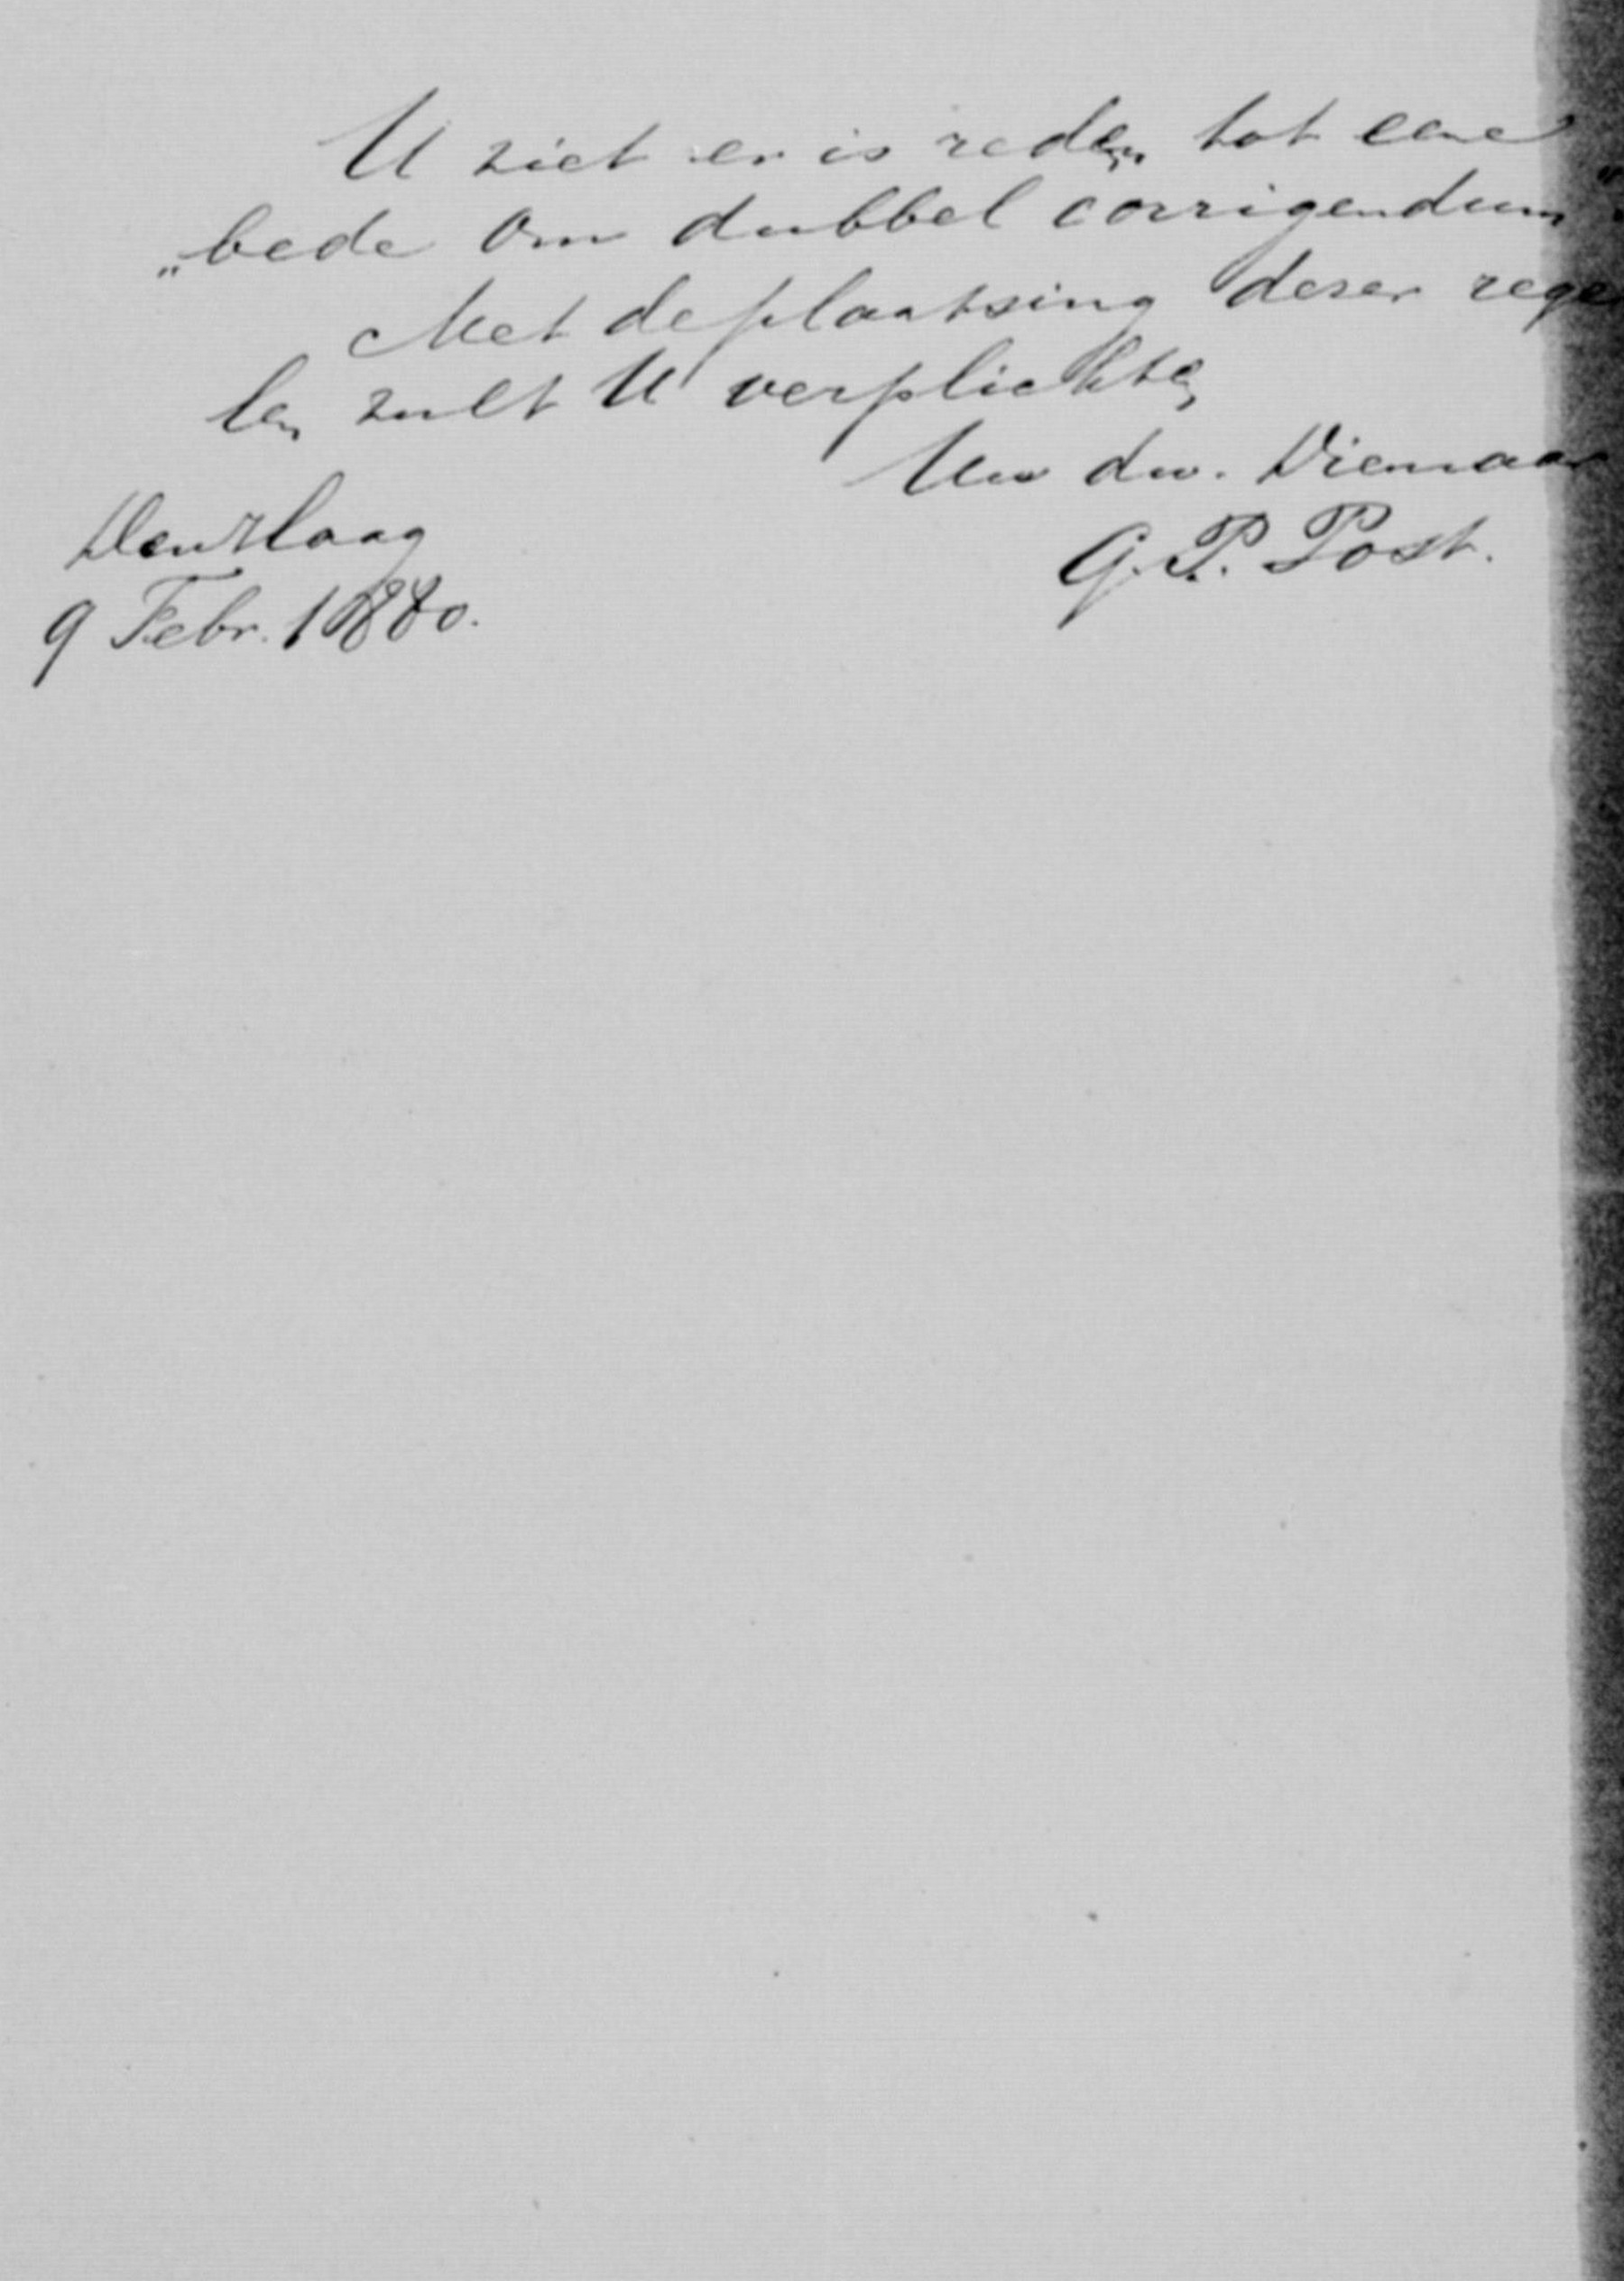 U ziet er is reden tot eene
„bede om dubbel corrigendum"
Met de plaatsing dezer rege
len zult U verplichten
Uw dw. Dienaar
G. P. Post.
Den Haag
9 Febr. 1880.